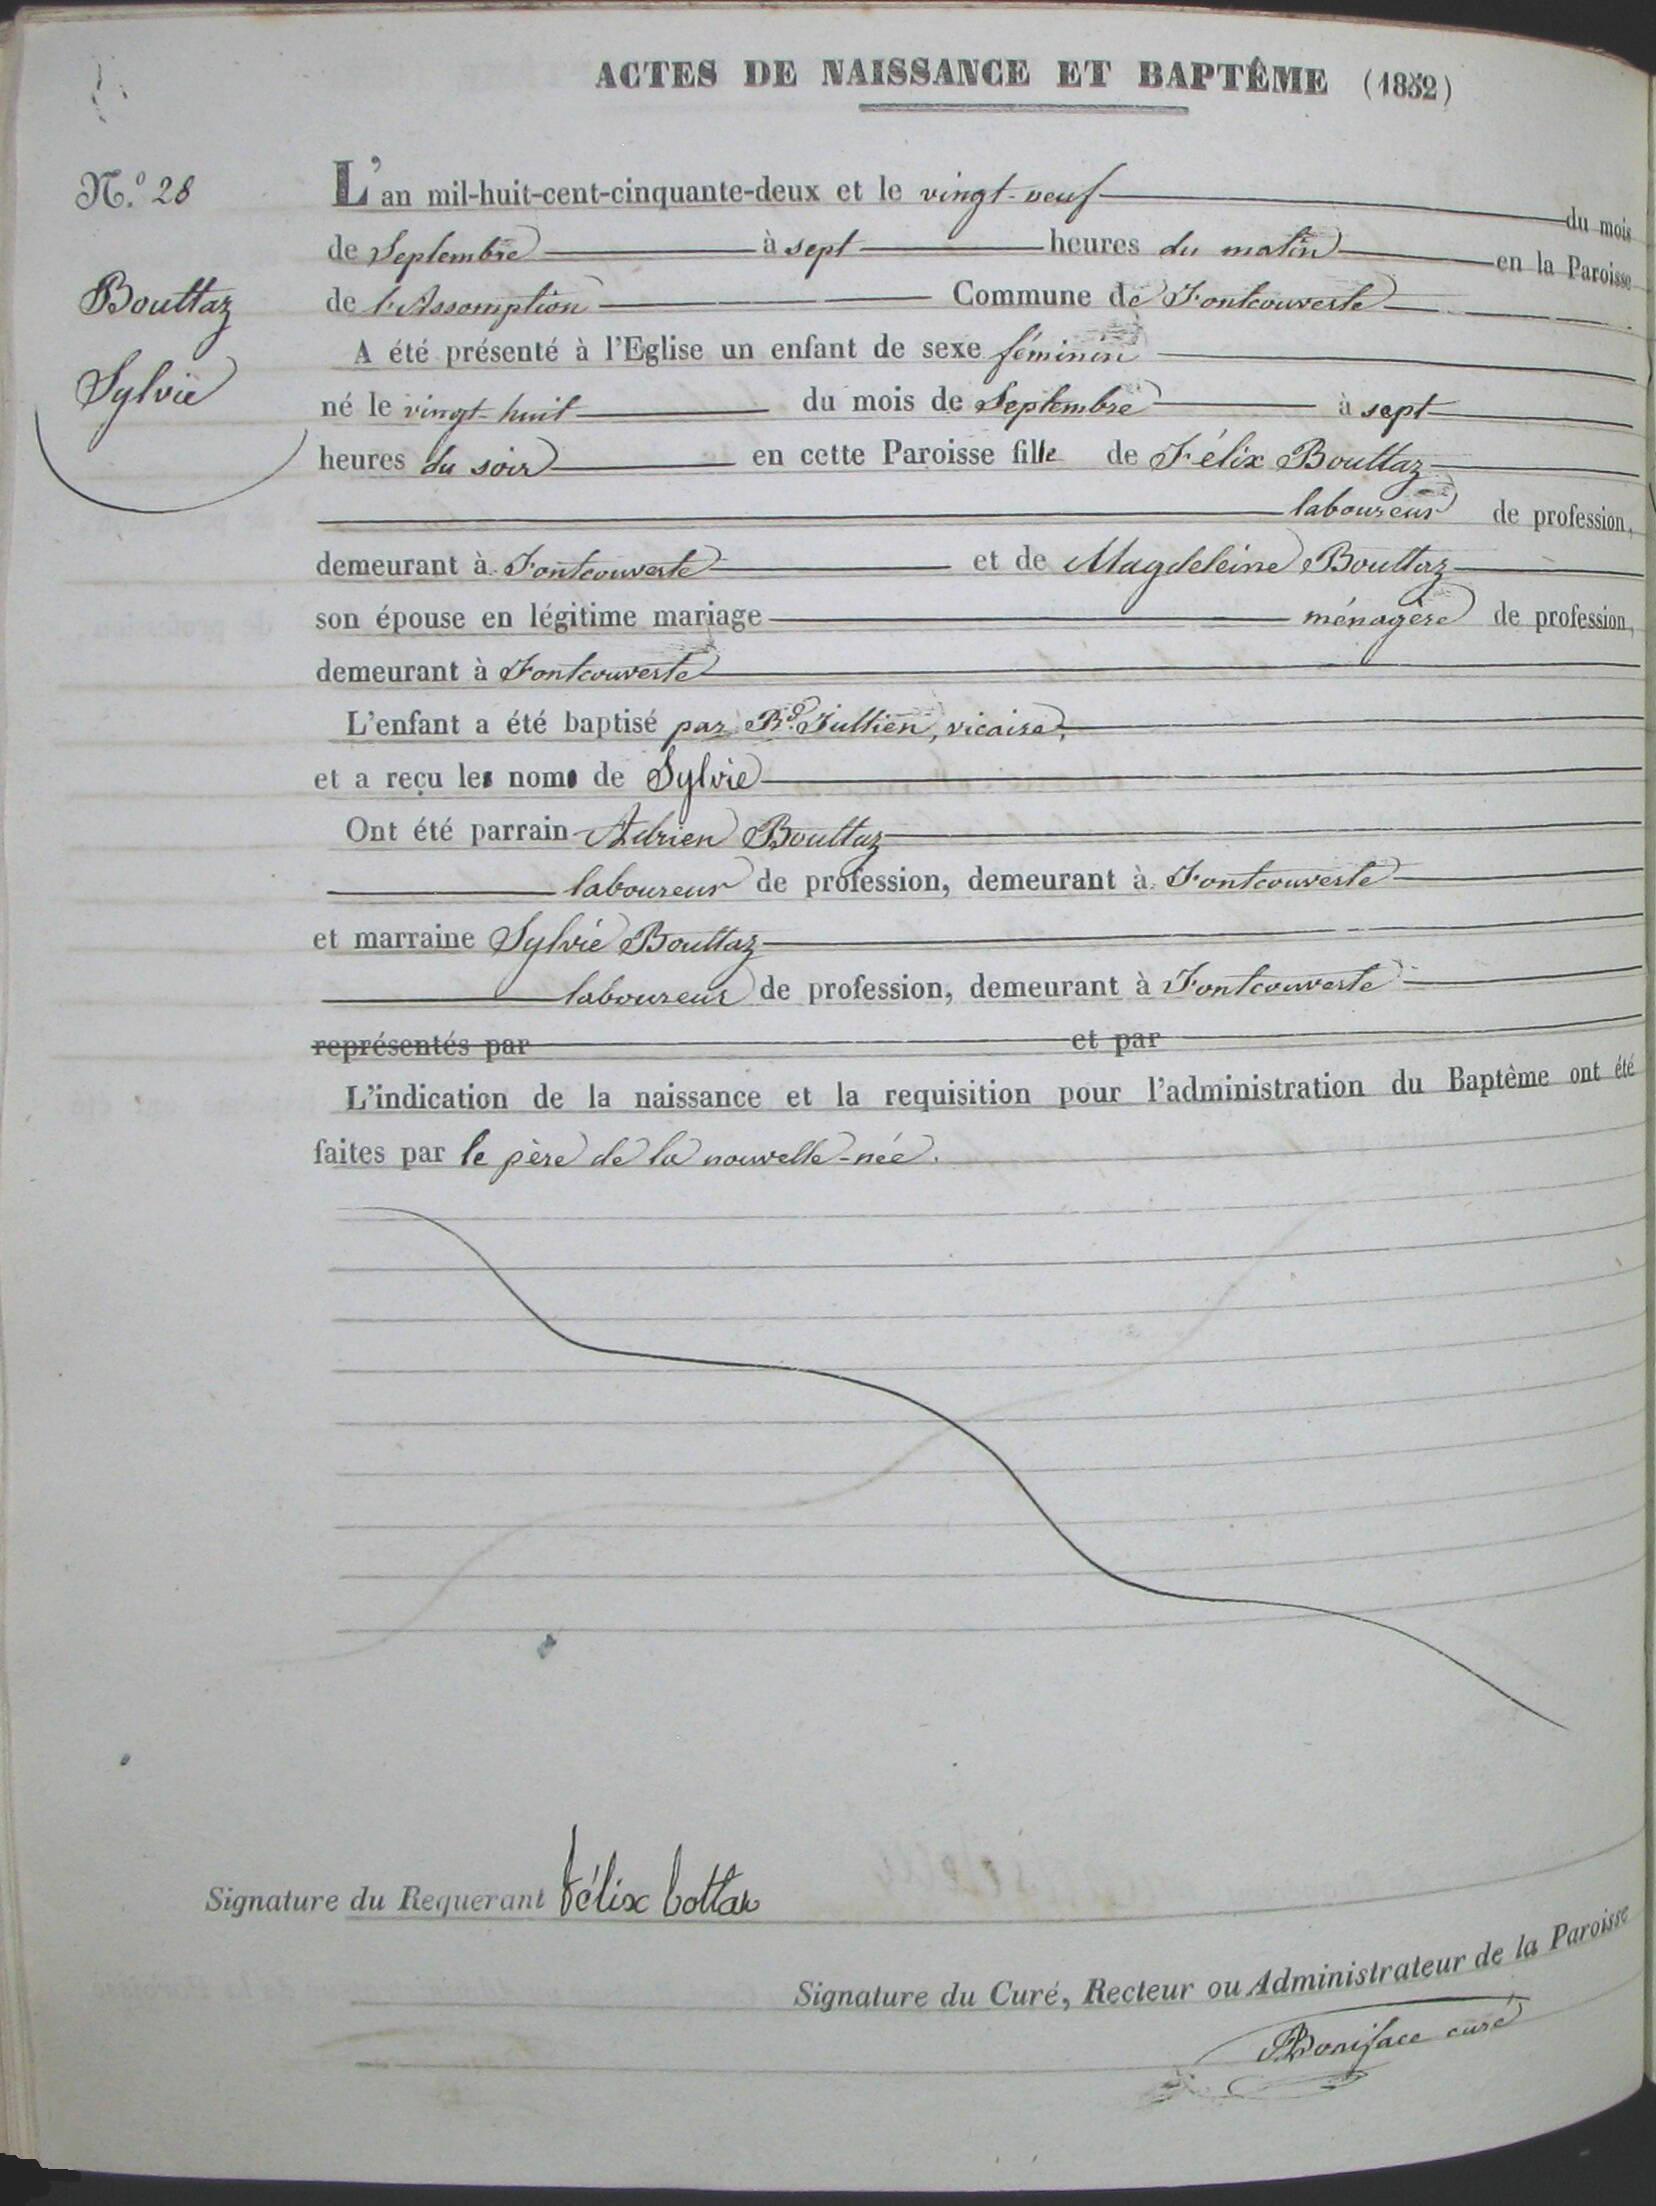 ACTES DE NAISSANCE ET BAPTÊME (1852)
N.º 28
Bouttaz
Sylvie
L'an mil-huit-cent-cinquante-deux et le vingt-neuf du mois
de Septembre à sept heures du matin en la Paroisse
de l'Assomption Commune de Fontcouverte
A été présenté à l'Eglise un enfant de sexe féminin
né le vingt-huit du mois de Septembre à sept
heures du soir en cette Paroisse fille de Félix Bouttaz
laboureur de profession,
demeurant à Fontcouverte et de Magdeleine Bouttaz
son épouse en légitime mariage ménagère de profession,
demeurant à Fontcouverte
L'enfant a été baptisé par Rd. Jullien, vicaire,
et a reçu les noms de Sylvie
Ont été parrain Adrien Bouttaz
laboureur de profession, demeurant à Fontcouverte
et marraine Sylvie Bouttaz
laboureur de profession, demeurant à Fontcouverte
représentés par et par
L'indication de la naissance et la requisition pour l'administration du Baptême ont été
faites par le père de la nouvelle-née.
Signature du Requerant félix bottaz
Signature du Curé, Recteur ou Administrateur de la Paroisse
Boniface curé